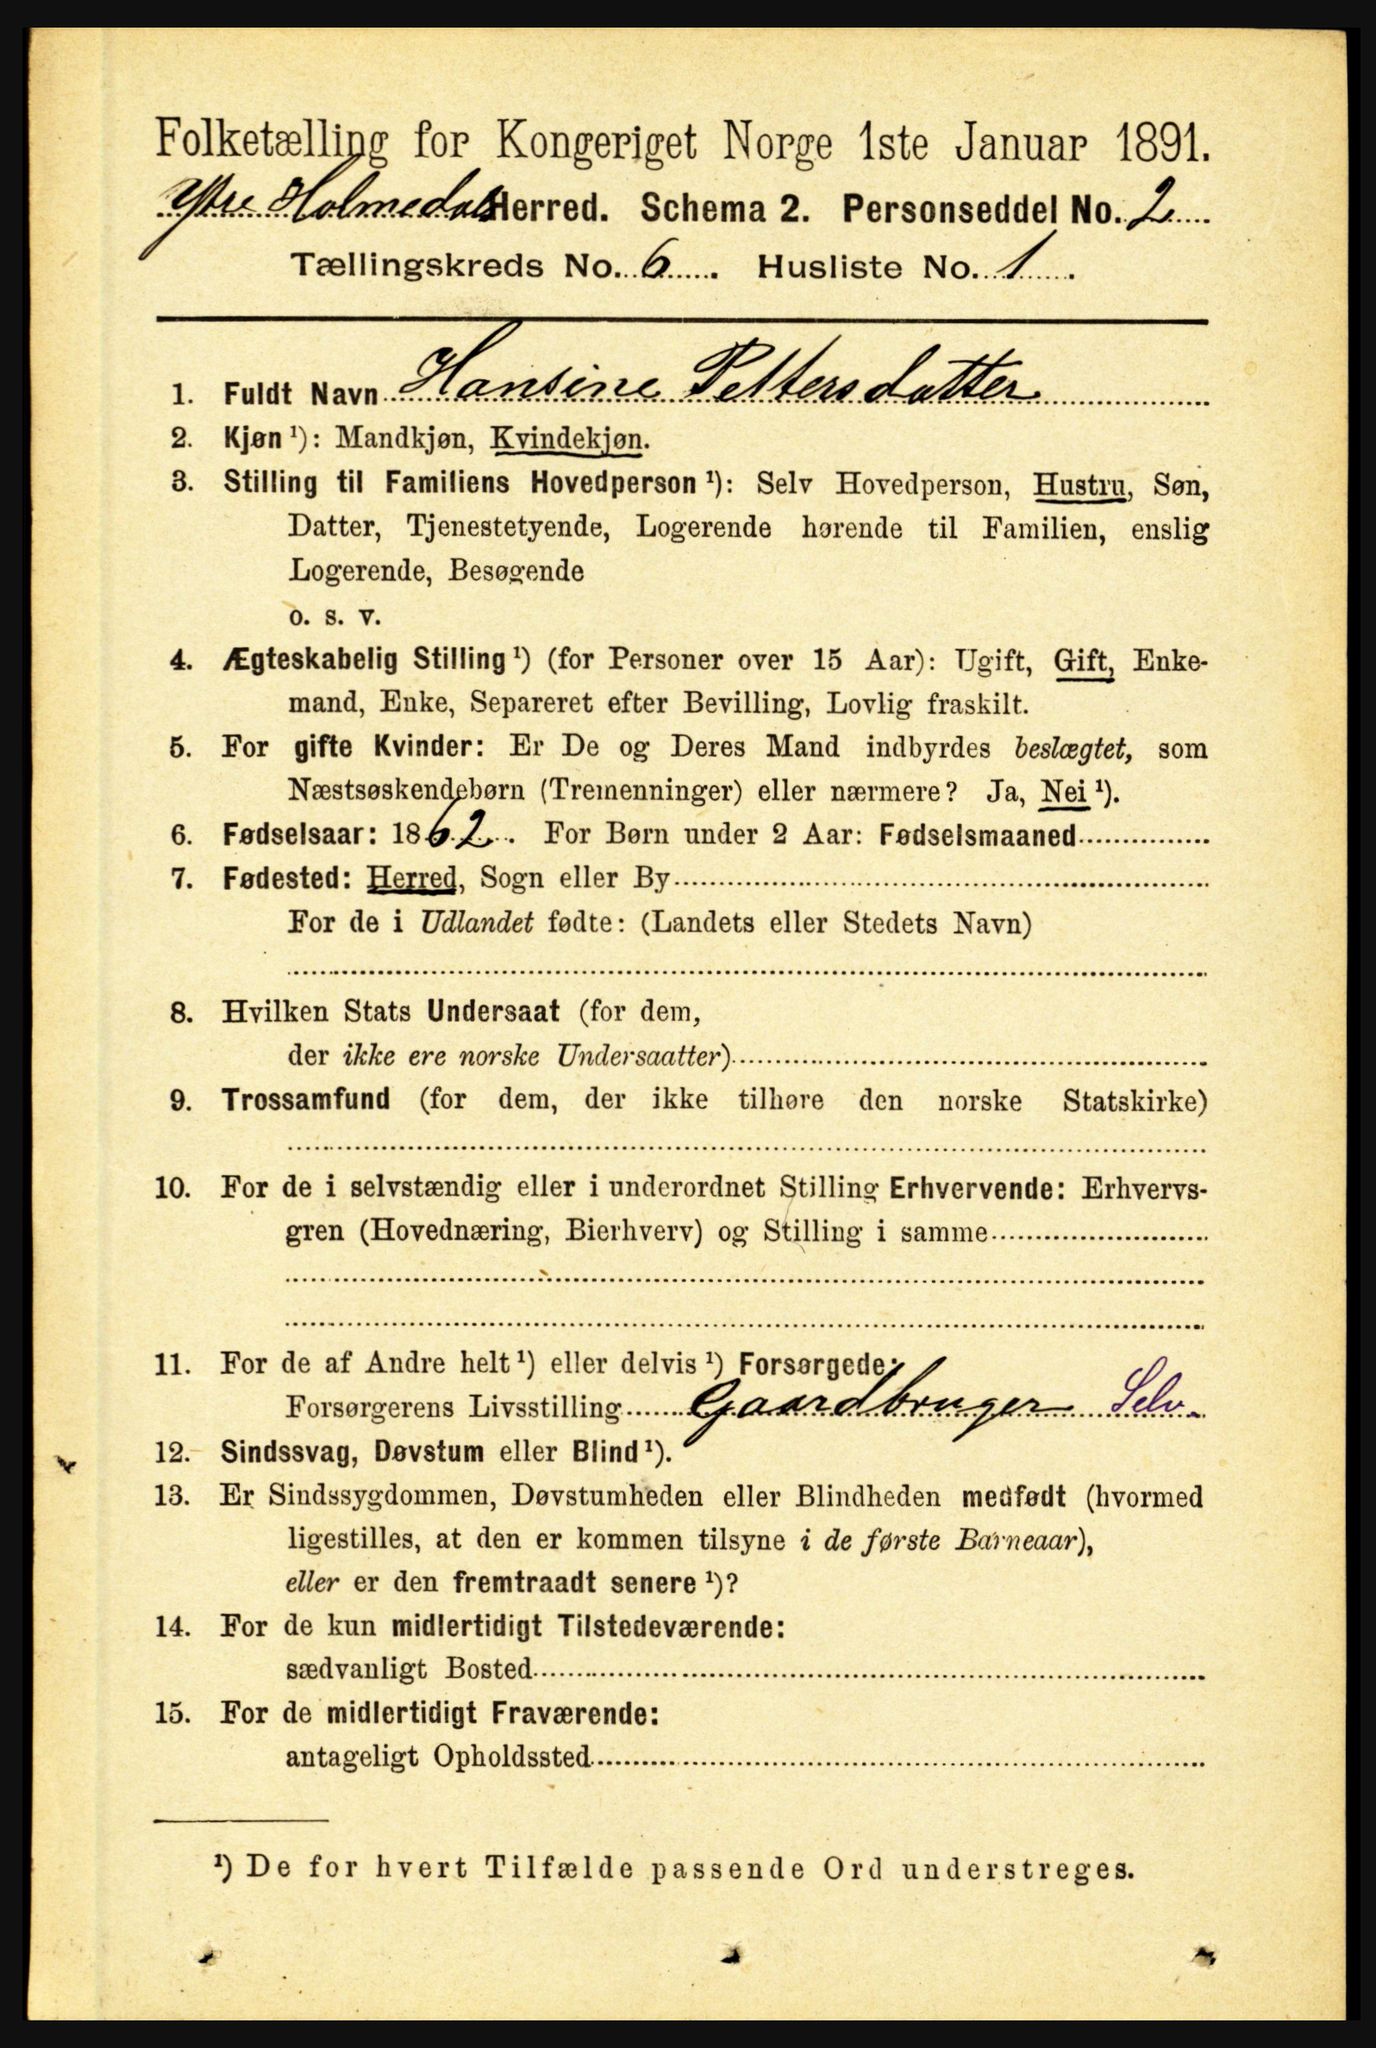 Folketælling for Kongeriget Norge 1ste Januar 1891.
Ytre Holmedals Herred. Schema 2. Personseddel No. 2
Tællingskreds No. 6. Husliste No. 1.
1. Fuldt Navn Hansine Pettersdatter
2. Kjøn ¹): Mandkjøn, Kvindekjøn.
3. Stilling til Familiens Hovedperson ¹): Selv Hovedperson, Hustru, Søn,
Datter, Tjenestetyende, Logerende hørende til Familien, enslig
Logerende, Besøgende
o. s. v.
4. Ægteskabelig Stilling ¹) (for Personer over 15 Aar): Ugift, Gift, Enke-
mand, Enke, Separeret efter Bevilling, Lovlig fraskilt.
5. For gifte Kvinder: Er De og Deres Mand indbyrdes beslægtet, som
Næstsøskendebørn (Tremenninger) eller nærmere? Ja, Nei ¹).
6. Fødselsaar: 1862. For Børn under 2 Aar: Fødselsmaaned
7. Fødested: Herred, Sogn eller By
For de i Udlandet fødte: (Landets eller Stedets Navn)
8. Hvilken Stats Undersaat (for dem,
der ikke ere norske Undersaatter)
9. Trossamfund (for dem, der ikke tilhøre den norske Statskirke)
10. For de i selvstændig eller i underordnet Stilling Erhvervende: Erhvervs-
gren (Hovednæring, Bierhverv) og Stilling i samme
11. For de af Andre helt ¹) eller delvis ¹) Forsørgede:
Forsørgerens Livsstilling Gaardbruger Selv
12. Sindssvag, Døvstum eller Blind ¹).
13. Er Sindssygdommen, Døvstumheden eller Blindheden medfødt (hvormed
ligestilles, at den er kommen tilsyne i de første Barneaar),
eller er den fremtraadt senere ¹)?
14. For de kun midlertidigt Tilstedeværende:
sædvanligt Bosted
15. For de midlertidigt Fraværende:
antageligt Opholdssted
¹) De for hvert Tilfælde passende Ord understreges.